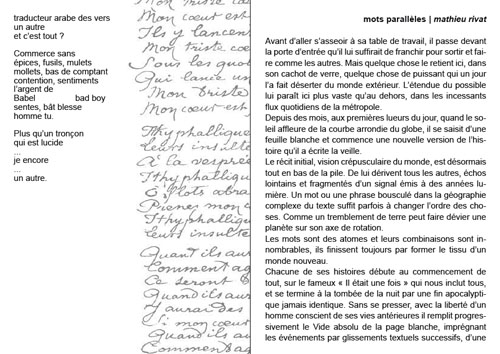 traducteur arabe des vers
un autre
et c'est tout ?
Commerce sans
épices, fusils, mulets
mollets, bas de comptant
contention, sentiments
l'argent de
Babel bad boy
sentes, bât blesse
homme tu.
Plus qu'un tronçon
qui est lucide
...
je encore
...
un autre.
Mon cœur est
Ils y lancent
Mon triste cœu
Sous les quol
Qui lance un
Mon triste
Mon cœur est
Ithyphallique
Leurs insulte
À la vesprée
Ithyphallique
Ô flots abra
Prenez mon
Ithyphallique
Leurs insulte
Quand ils aur
Comment ag
Ce seront d
Quand ils aur
J'aurai des
Si mon cœur
Quand ils aur
Comment ag
mots parallèles | mathieu rivat
Avant d'aller s'asseoir à sa table de travail, il passe devant
la porte d'entrée qu'il lui suffirait de franchir pour sortir et fai-
re comme les autres. Mais quelque chose le retient ici, dans
son cachot de verre, quelque chose de puissant qui un jour
l'a fait déserter du monde extérieur. L'étendue du possible
lui paraît ici plus vaste qu'au dehors, dans les incessants
flux quotidiens de la métropole.
Depuis des mois, aux premières lueurs du jour, quand le so-
leil affleure de la courbe arrondie du globe, il se saisit d'une
feuille blanche et commence une nouvelle version de l'his-
toire qu'il a écrite la veille.
Le récit initial, vision crépusculaire du monde, est désormais
tout en bas de la pile. De lui dérivent tous les autres, échos
lointains et fragmentés d'un signal émis à des années lu-
mière. Un mot ou une phrase bousculé dans la géographie
complexe du texte suffit parfois à changer l'ordre des cho-
ses. Comme un tremblement de terre peut faire dévier une
planète sur son axe de rotation.
Les mots sont des atomes et leurs combinaisons sont in-
nombrables, ils finissent toujours par former le tissu d'un
monde nouveau.
Chacune de ses histoires débute au commencement de
tout, sur le fameux « Il était une fois » qui nous inclut tous,
et se termine à la tombée de la nuit par une fin apocalypti-
que jamais identique. Sans se presser, avec la liberté d'un
homme conscient de ses vies antérieures il remplit progres-
sivement le Vide absolu de la page blanche, imprégnant
les événements par glissements textuels successifs, d'une